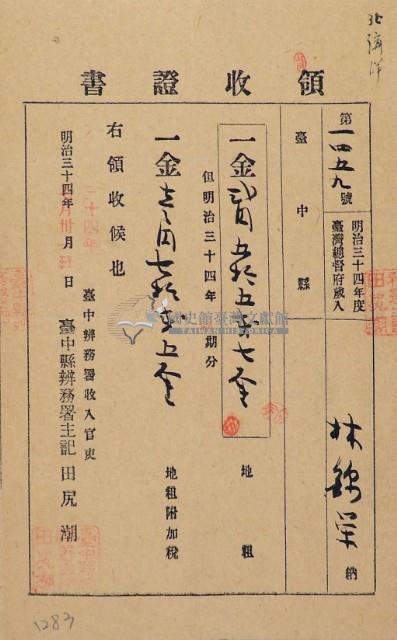 領收證書
第一四五九號
明治三十四年度
臺灣總督府歲入
臺中縣
林錦榮 納
一金貳円五拾五錢七厘 地租
但明治三十四年 期分
一金壱円七拾 錢五厘 地租附加稅
右領收候也
明治三十四年 月 日
臺中辨務署收入官吏
臺中縣辨務署主記 田尻潮
國史館臺灣文獻館
TAIWAN HISTORICA
1283